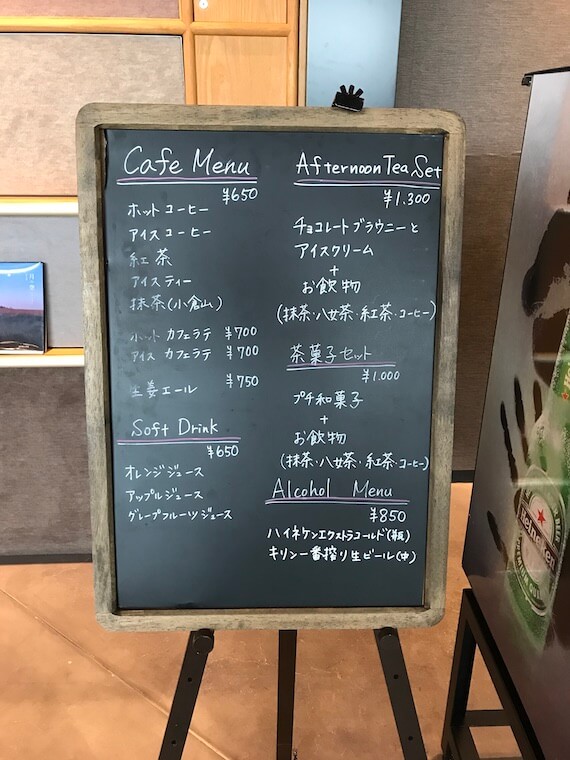 Cafe Menu
¥650
ホットコーヒー
アイスコーヒー
紅茶
アイスティー
抹茶(小倉山)
ホットカフェラテ ¥700
アイスカフェラテ ¥700
生姜エール ¥750
Soft Drink
¥650
オレンジジュース
アップルジュース
グレープフルーツジュース
Afternoon Tea Set
¥1.300
チョコレートブラウニーと
アイスクリーム
+
お飲物
(抹茶・八女茶・紅茶・コーヒー)
茶菓子セット
¥1.000
プチ和菓子
+
お飲物
(抹茶・八女茶・紅茶・コーヒー)
Alcohol Menu
¥850
ハイネケンエクストラコールド(瓶)
キリン一番搾り生ビール(中)
Heineken